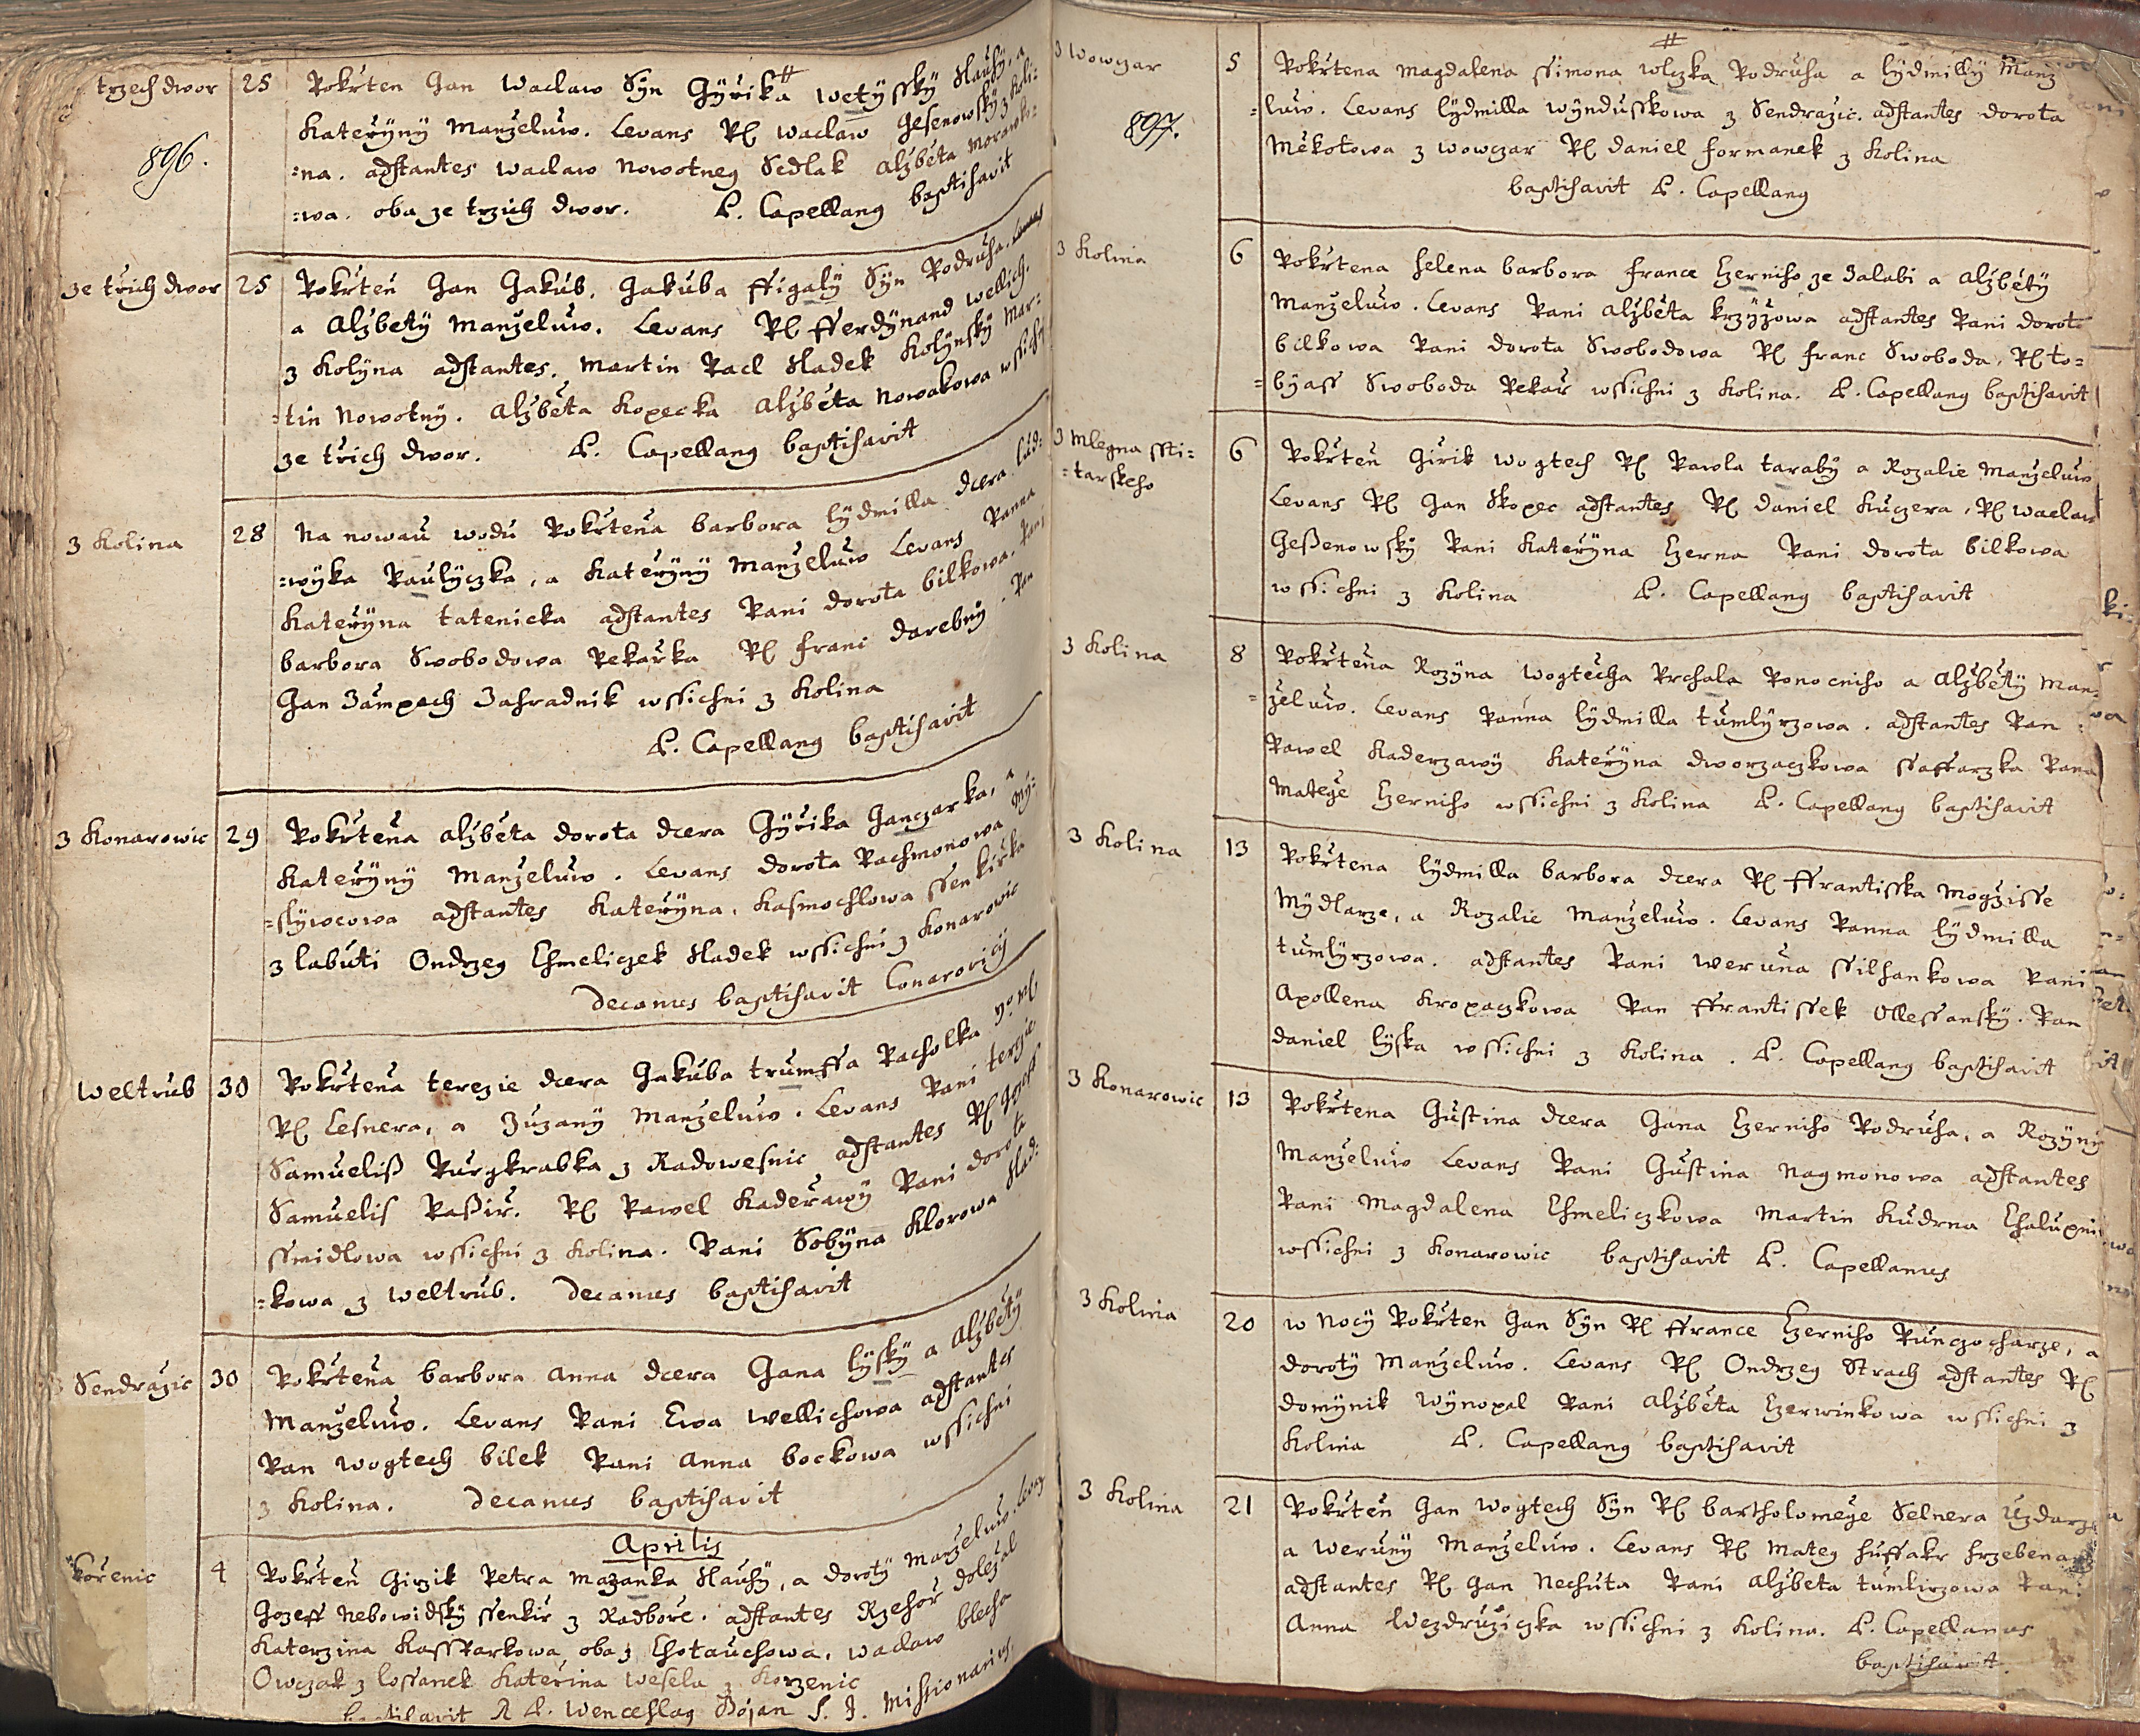 trzech dwor 25 Pokrten Gan Waclaw Syn Gÿrika wetÿsskÿ Hausÿ, a
896. Katerÿnÿ Manzeluw. Levans P. waclaw Gesenowskÿ z Koli=
=na. adstantes waclaw Nowotneg Sedlak alzbeta Morawko=
=wa. oba ze trzich dwor. P. Capellang baptisavit
ze trich dwor 25 Pokrten Gan Gakub, Gakuba ffigalÿ Sÿn Podruha. Levans
a alzbetÿ manzeluw. Levans P. fferdÿnand wellich.
z Kolÿna adstantes. Martin Pacl Sladek Kolÿnskÿ Mar=
=tin Nowotnÿ. alzbeta Kopecka alzbeta Nowakowa wssichni
ze trich dwor. P. Capellang baptisavit
z Kolina 28 Na nowau wodu Pokrtena barbora lÿdmilla dcera lud=
=wÿka Paulÿczka, a Katerÿnÿ manzeluw Levans Panna
Katerÿna tatenicka adstantes Pani dorota bilkowa. Pani
barbora Swobodowa Pekarka P. frani darebnÿ. Pan
Gan Zampach Zahradnik wssichni z Kolina
P. Capellang baptisavit
z Konarowic 29 Pokrtena alzbeta dorota dcera Gÿrika Ganczarka, a
Katerÿnÿ manzeluw. Levans dorota Pachmonowa Mÿ=
=slÿwcowa adstantes Katerÿna, Kasmochlowa ssenkirka
z labuti Ondrzeg Chmeliczek Sladek wssichni z Konarowic
Decanus baptisavit Conarovicÿ
Weltrub 30 Pokrtena terezie dcera Gakuba trumffa Pacholka
P. Lesnera, a Zuzanÿ Manzeluw. Levans Pani terezie
Samueliß Purgkrabka z Radowesnic adstantes P. Gozeff
Samuelis Paßir. P. Pawel Kaderawÿ Pani dorota
ssmidlowa wssichni z Kolina. Pani Sobÿna Klorowa Slad=
=kowa z weltrub. Decanus baptisavit
z Sendrazic 30 Pokrtena barbora anna dcera Gana lÿskÿ a alzbetÿ
Manzeluw. Levans Pani Ewa wellichowa adstantes
Pan wogtech bilek Pani anna bockowa wssichni
z Kolina. Decanus baptisavit
Aprilis
korenic 4 Pokrten Girzik Petra mazanka Hausÿ, a dorotÿ manzeluw. Levans
Gozeff Nebowidskÿ ssenkir z Radborc. adstantes Rzehor dolezal
Katerzina Kasparkowa oba z Chotauchowa, waclaw blecha
Owczak z lossanek Katerina wesela z Korzenic
baptisavit R P. Wenceslag Bojan S. J. Missionarius.
z Wowczar 5 Pokrtena Magdalena ssimona wlczka Podruha a lÿdmillÿ Manz
897. =luw. Levans lÿdmilla wÿndusskowa z Sendrazic. adstantes dorota
Mekotowa z wowczar P. daniel formanek z Kolina
baptisavit P. Capellang
z Kolina 6 Pokrtena helena barbora france Czerniho ze Zalabi a alzbetÿ
Manzeluw. Levans Pani alzbeta krzÿzowa adstantes Pani dorota
bilkowa Pani dorota Swobodowa P. franc Swoboda, P. to=
=bÿass Swoboda Pekar wssichni z Kolina. P. Capellang baptisavit
z Mlegna ssti= 6 Pokrten Girik wogtech P. Pawla tarabÿ a Rozalie Manzeluw
=tarskeho Levans P. Gan Skopec adstantes P. daniel Kuczera, P. waclaw
Geßenowskÿ Pani Katerÿna Czerna Pani dorota bilkowa
wssichni z Kolina P. Capellang baptisavit
z Kolina 8 Pokrtena Rozÿna wogtecha Prchala Ponocniho a alzbetÿ Man=
=zeluw. Levans Panna lÿdmilla tumlÿrzowa. adstantes Pan
Pawel Kaderzawÿ Katerÿna dworzaczkowa ssaffarzka Pana
Matege Czerniho wssichni z Kolina P. Capellang baptisavit
z Kolina 13 Pokrtena lÿdmilla barbora dcera P. ffrantisska mogzisse
Mÿdlarze, a Rozalie manzeluw. Levans Panna lÿdmilla
tumlÿrzowa. adstantes Pani Weruna ssilhankowa Pani
Apollena Kropaczkowa Pan ffrantissek Ollessanskÿ. Pan
daniel lÿska wssichni z Kolina. P. Capellang baptisavit
z Konarowic 13 Pokrtena Gustina dcera Gana Czerniho Podruha, a Rozÿnÿ
Manzeluw Levans Pani Gustina Nagmonowa adstantes
Pani Magdalena Chmeliczkowa Martin Kudrna Chalupni
wssichni z Konarowic baptisavit P. Capellanus
z Kolina 20 w Nocÿ Pokrten Gan Sÿn P. ffrance Czerniho Punczocharze, a
dorotÿ manzeluw. Levans P. Ondrzeg Strach adstantes P.
domÿnik wÿnopal Pani alzbeta Czerwinkowa wssichni z
Kolina P. Capellang baptisavit
z Kolina 21 Pokrten Gan wogtech Sÿn P. bartholomege Selnera Uzdarze
a werunÿ manzeluw. Levans P. mateg huffakr hrzebenarz
adstantes P. Gan Nechuta Pani alzbeta tumlirzowa Pani
Anna Wezdruziczka wssichni z Kolina. P. Capellanus
baptisavit.